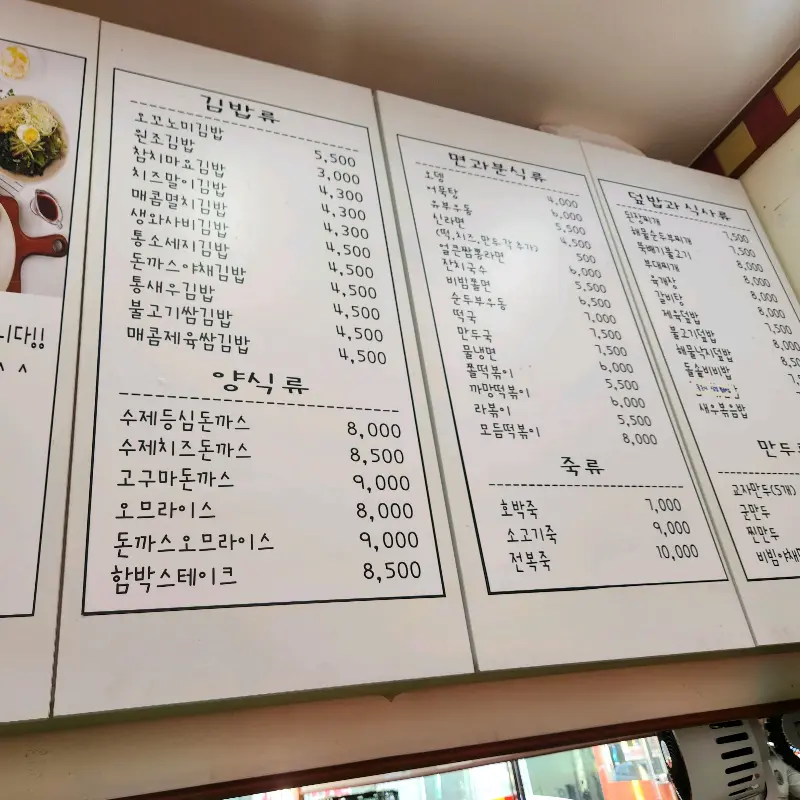 니다!!
^ ^
김밥류
오꼬노미김밥 5,500
원조김밥 3,000
참치마요김밥 4,300
치즈말이김밥 4,300
매콤멸치김밥 4,300
생와사비김밥 4,500
통소세지김밥 4,500
돈까스야채김밥 4,500
통새우김밥 4,500
불고기쌈김밥 4,500
매콤제육쌈김밥 4,500
양식류
수제등심돈까스 8,000
수제치즈돈까스 8,500
고구마돈까스 9,000
오므라이스 8,000
돈까스오므라이스 9,000
함박스테이크 8,500
면과분식류
오뎅 4,000
어묵탕 6,000
유부우동 5,500
신라면 4,500
(떡,치즈,만두 각 추가) 500
얼큰짬뽕라면 6,000
잔치국수 5,500
비빔쫄면 6,500
순두부우동 7,000
떡국 7,500
만두국 7,500
물냉면 6,000
쫄떡볶이 5,500
까망떡볶이 6,000
라볶이 5,500
모듬떡볶이 8,000
죽류
호박죽 7,000
소고기죽 9,000
전복죽 10,000
덮밥과식사류
된장찌개 7,500
해물순두부찌개 7,500
뚝배기불고기 8,000
부대찌개 8,000
육개장 8,000
갈비탕 8,000
제육덮밥 7,500
불고기덮밥
해물낙지덮밥
돌솥비빔밥
새우볶음밥
만두
교자만두(5개)
군만두
찐만두
비빔야채만